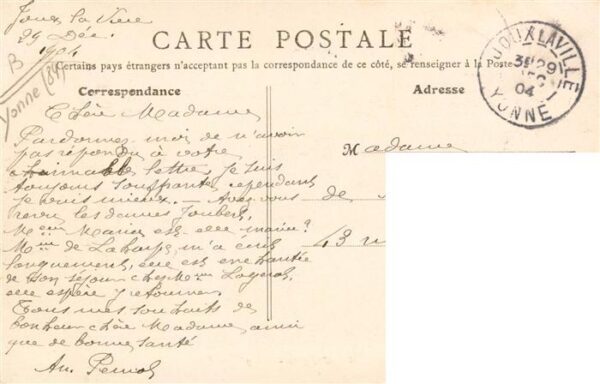 Joux la Ville
29 Déc.
1904
B
Yonne (89)
CARTE POSTALE
Certains pays étrangers n'acceptent pas la correspondance de ce côté, se renseigner à la Poste
Correspondance
Adresse
JOUX LA VILLE
29
04
YONNE
Chère Madame
Pardonnez moi de n'avoir
pas répondu à votre
aimable lettre, je suis
toujours souffrante, cependant
je vais mieux. — Avez-vous
revu les dames Joubert,
Maria est-elle mariée?
Mme de Laharpe m'a écrit
longuement, elle est enchantée
de son séjour chez Mme
elle espère y retourner
Tous mes souhaits de
bonheur chère Madame ainsi
que de bonne santé
Madame
de
43